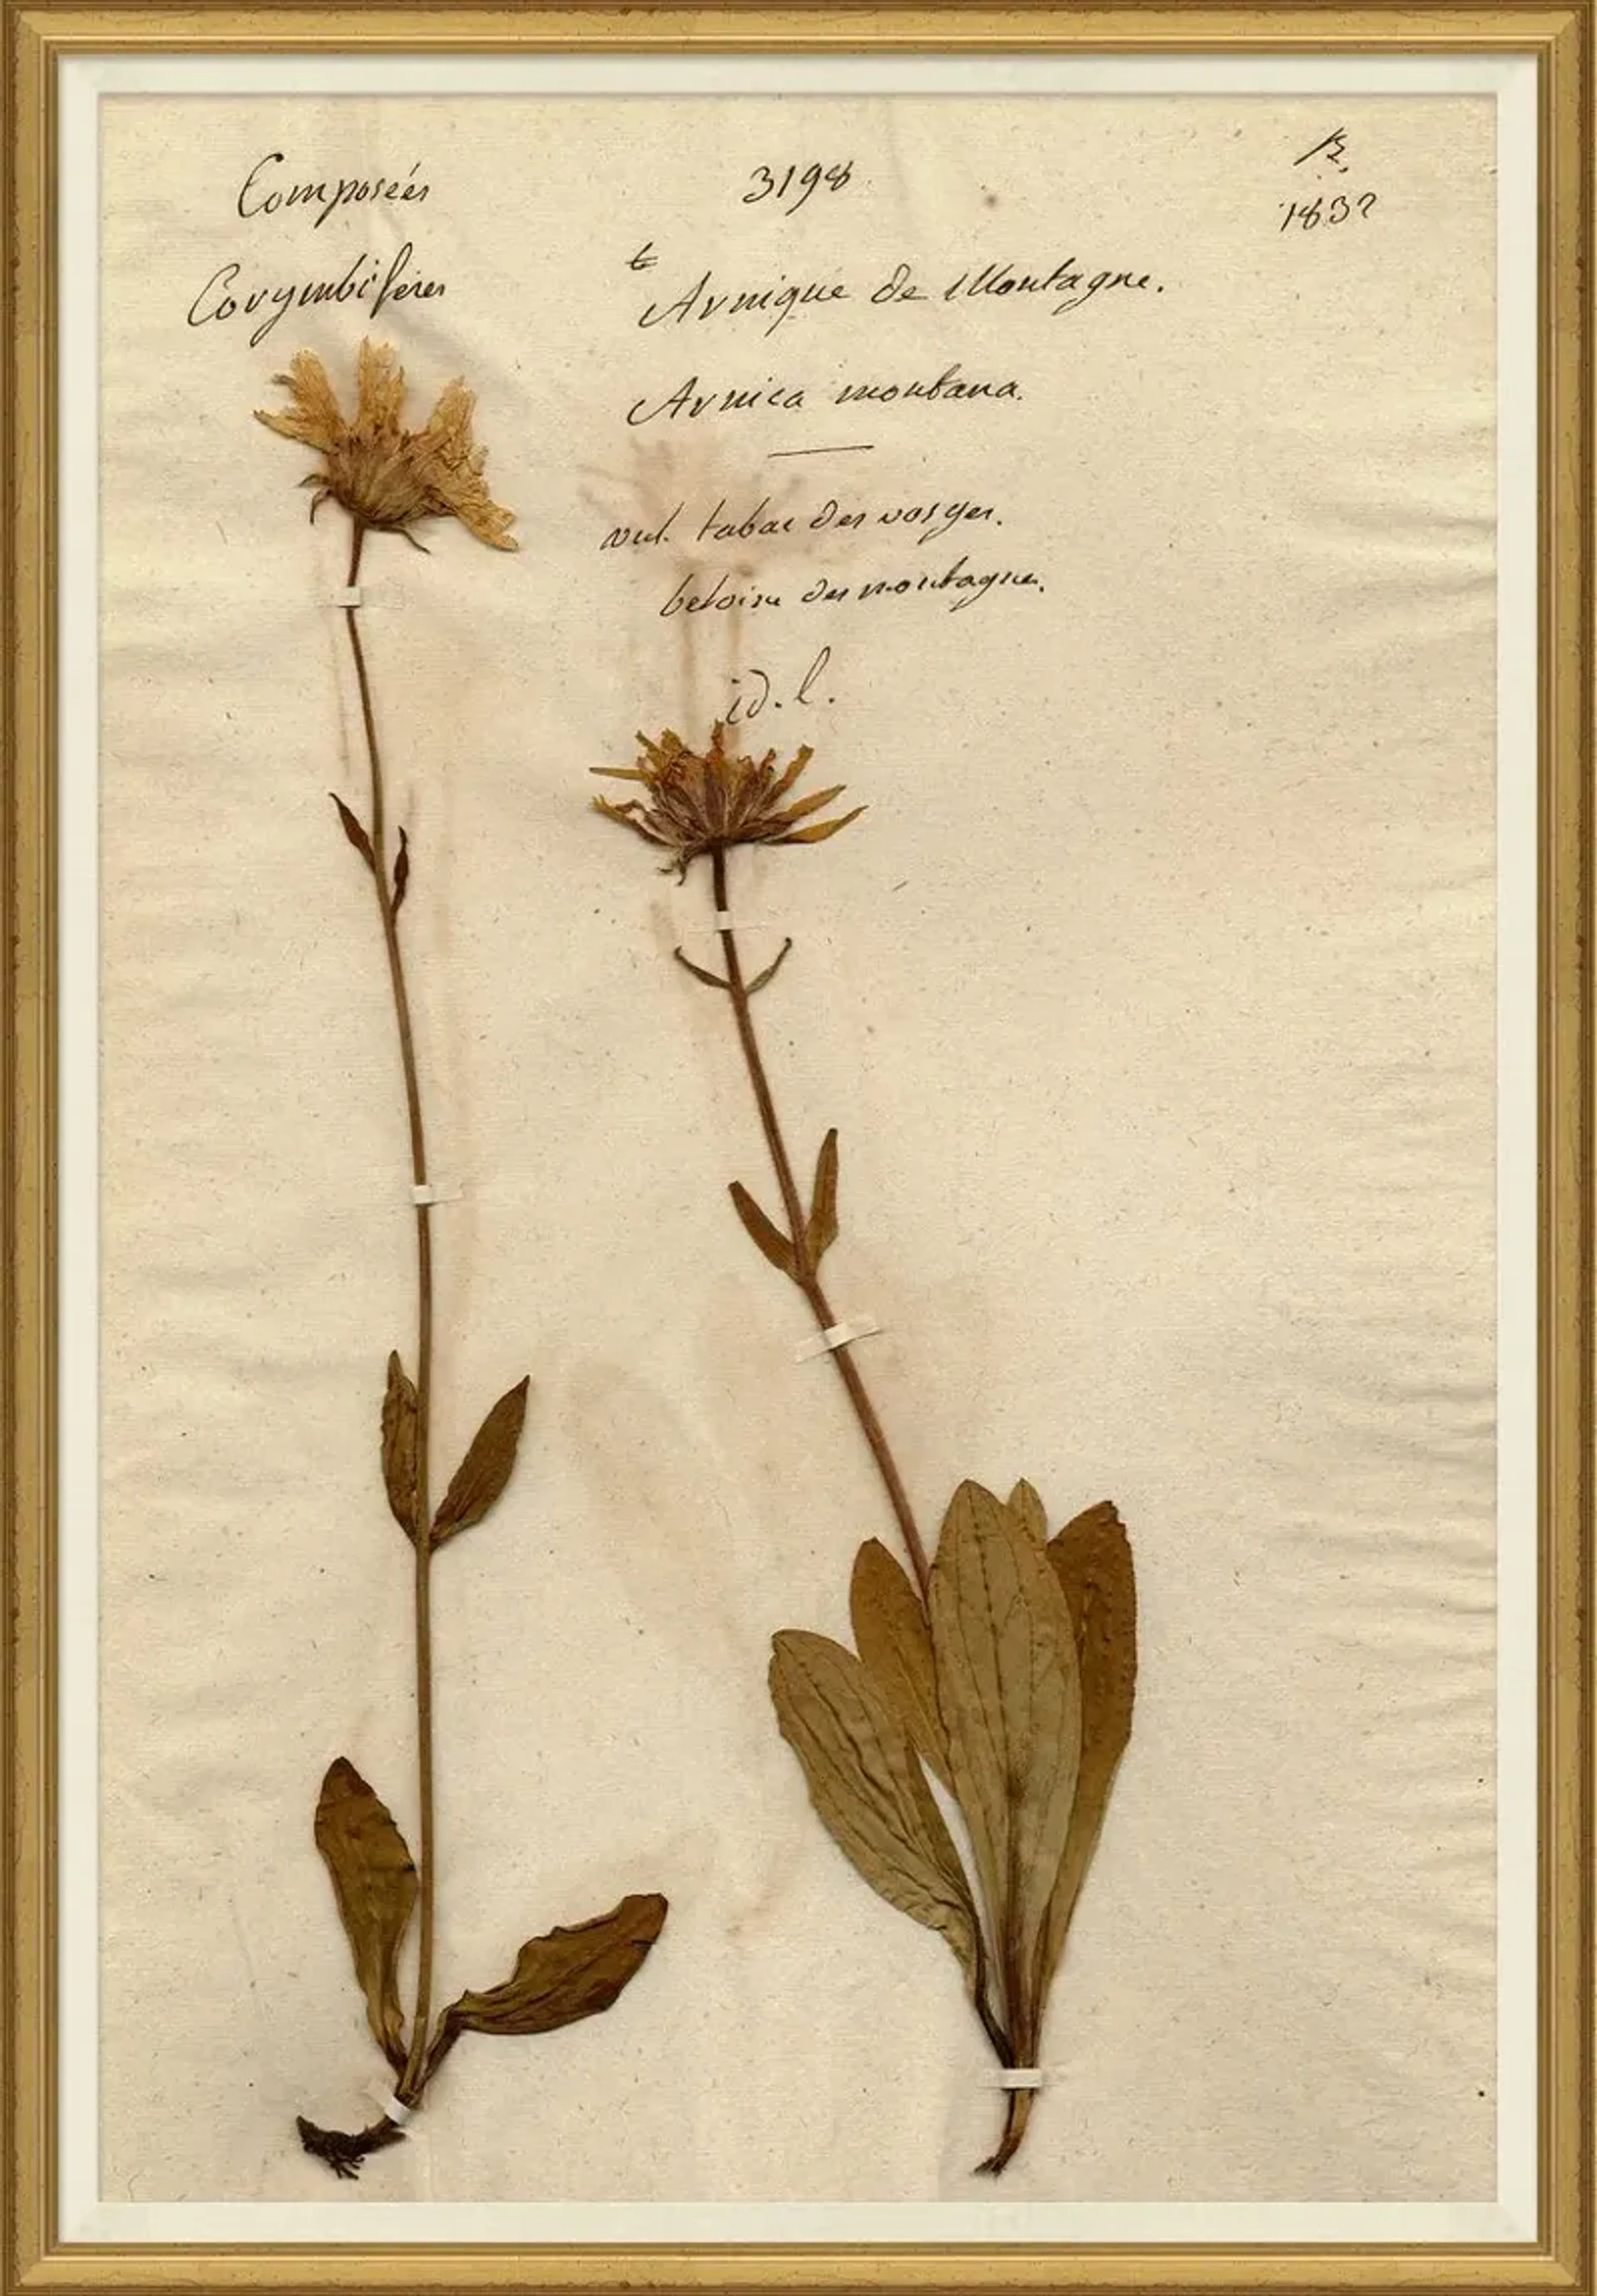 Composées
Corymbifères
3198
1832
Arnique de Montagne.
Arnica montana.
vul. tabac des vosges.
betoine des montagnes.
id. l.